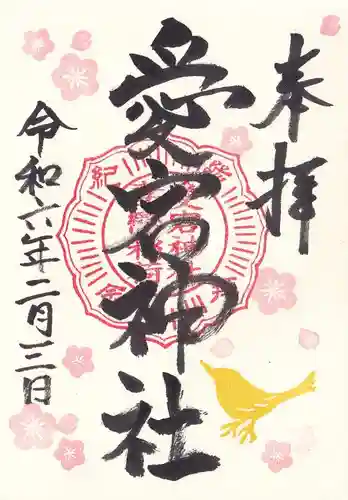 奉拝
愛宕神社
令和六年二月三日